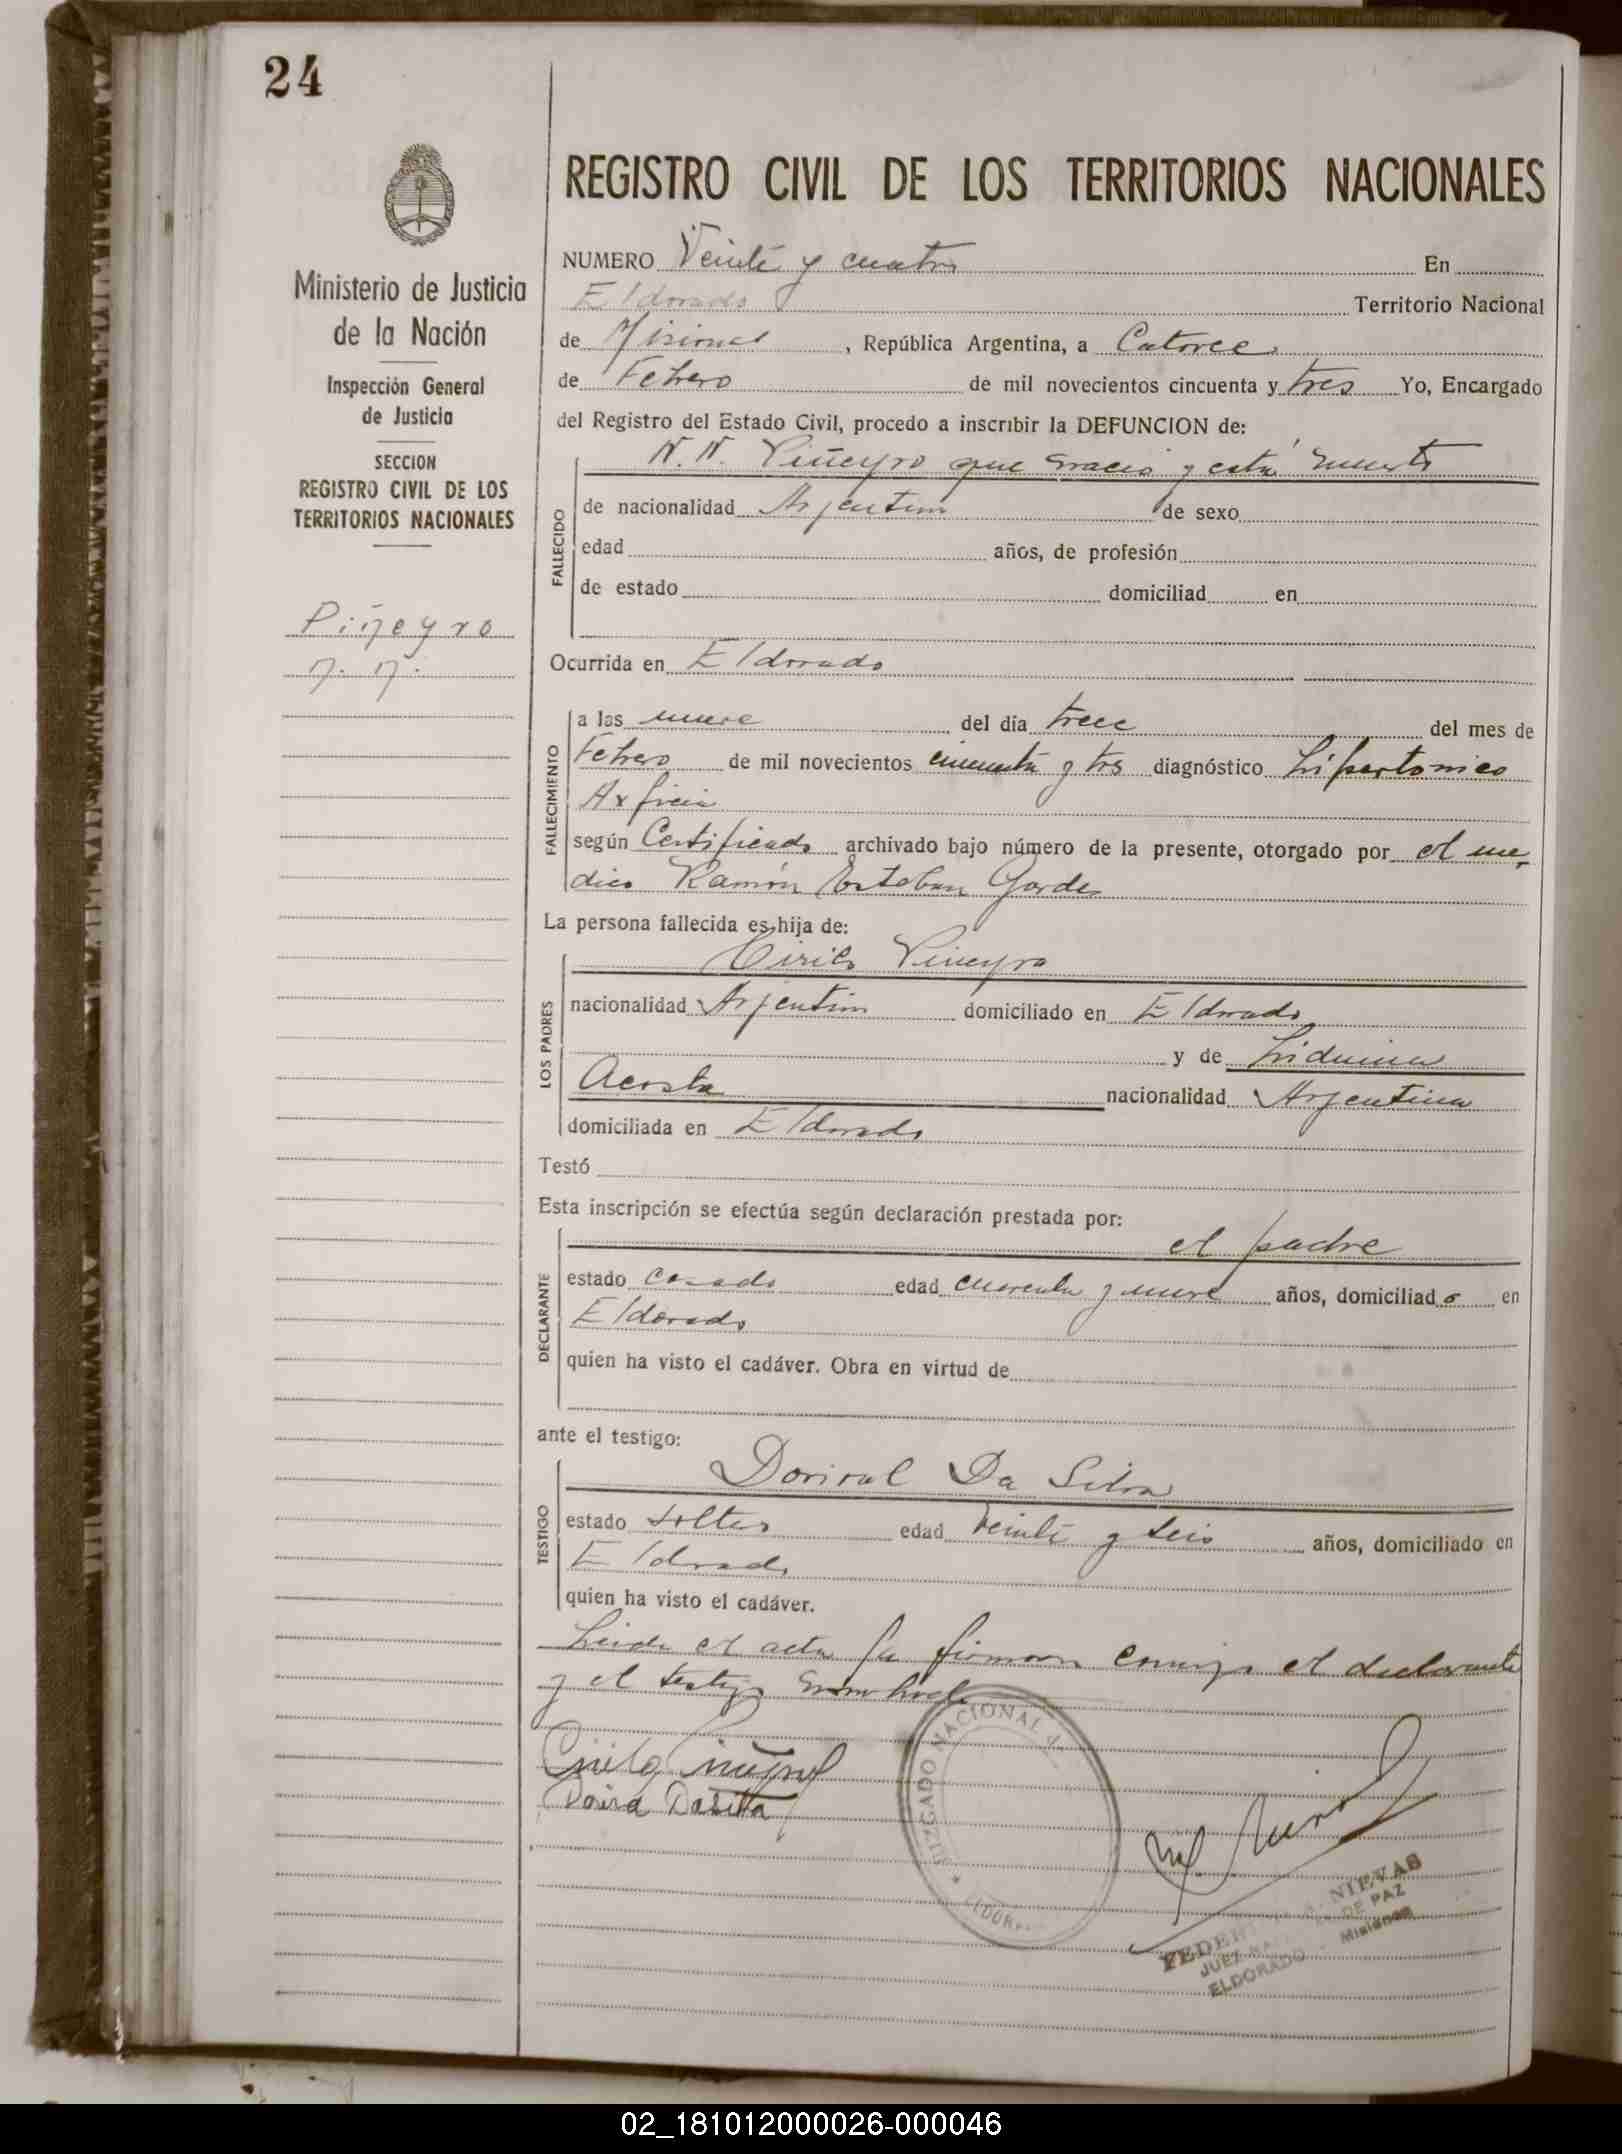 24
REGISTRO CIVIL DE LOS TERRITORIOS NACIONALES
Ministerio de Justicia
de la Nación
Inspección General
de Justicia
SECCION
REGISTRO CIVIL DE LOS
TERRITORIOS NACIONALES
Piñeyro
N. N.
NUMERO Veinte y cuatro En
Eldorado Territorio Nacional
de Misiones, República Argentina, a Catorce
de Febrero de mil novecientos cincuenta y tres Yo, Encargado
del Registro del Estado Civil, procedo a inscribir la DEFUNCION de:
N. N. Piñeyro que nació y está muerto
FALLECIDO
de nacionalidad Argentino de sexo
edad años, de profesión
de estado domiciliad en
Ocurrida en Eldorado
FALLECIMIENTO
a las nueve del día trece del mes de
Febrero de mil novecientos cincuenta y tres diagnóstico hipertonico
Axficia
según Certificado archivado bajo número de la presente, otorgado por el me-
dico Ramón Esteban Gardes
La persona fallecida es hija de:
LOS PADRES
Cirilo Piñeyro
nacionalidad Argentino domiciliado en Eldorado
y de Liduina
Acosta nacionalidad Argentina
domiciliada en Eldorado
Testó
Esta inscripción se efectúa según declaración prestada por:
DECLARANTE
el padre
estado casado edad cuarenta y nueve años, domiciliado en
Eldorado
quien ha visto el cadáver. Obra en virtud de
ante el testigo:
TESTIGO
Dorival Da Silva
estado soltero edad veinte y seis años, domiciliado en
Eldorado
quien ha visto el cadáver.
Leida el acta la firmaron conmigo el declarante
y el testigo
Cirilo Piñeyro
JUZGADO NACIONAL
NIEVAS
JUEZ DE PAZ
ELDORADO Misiones
02_181012000026-000046